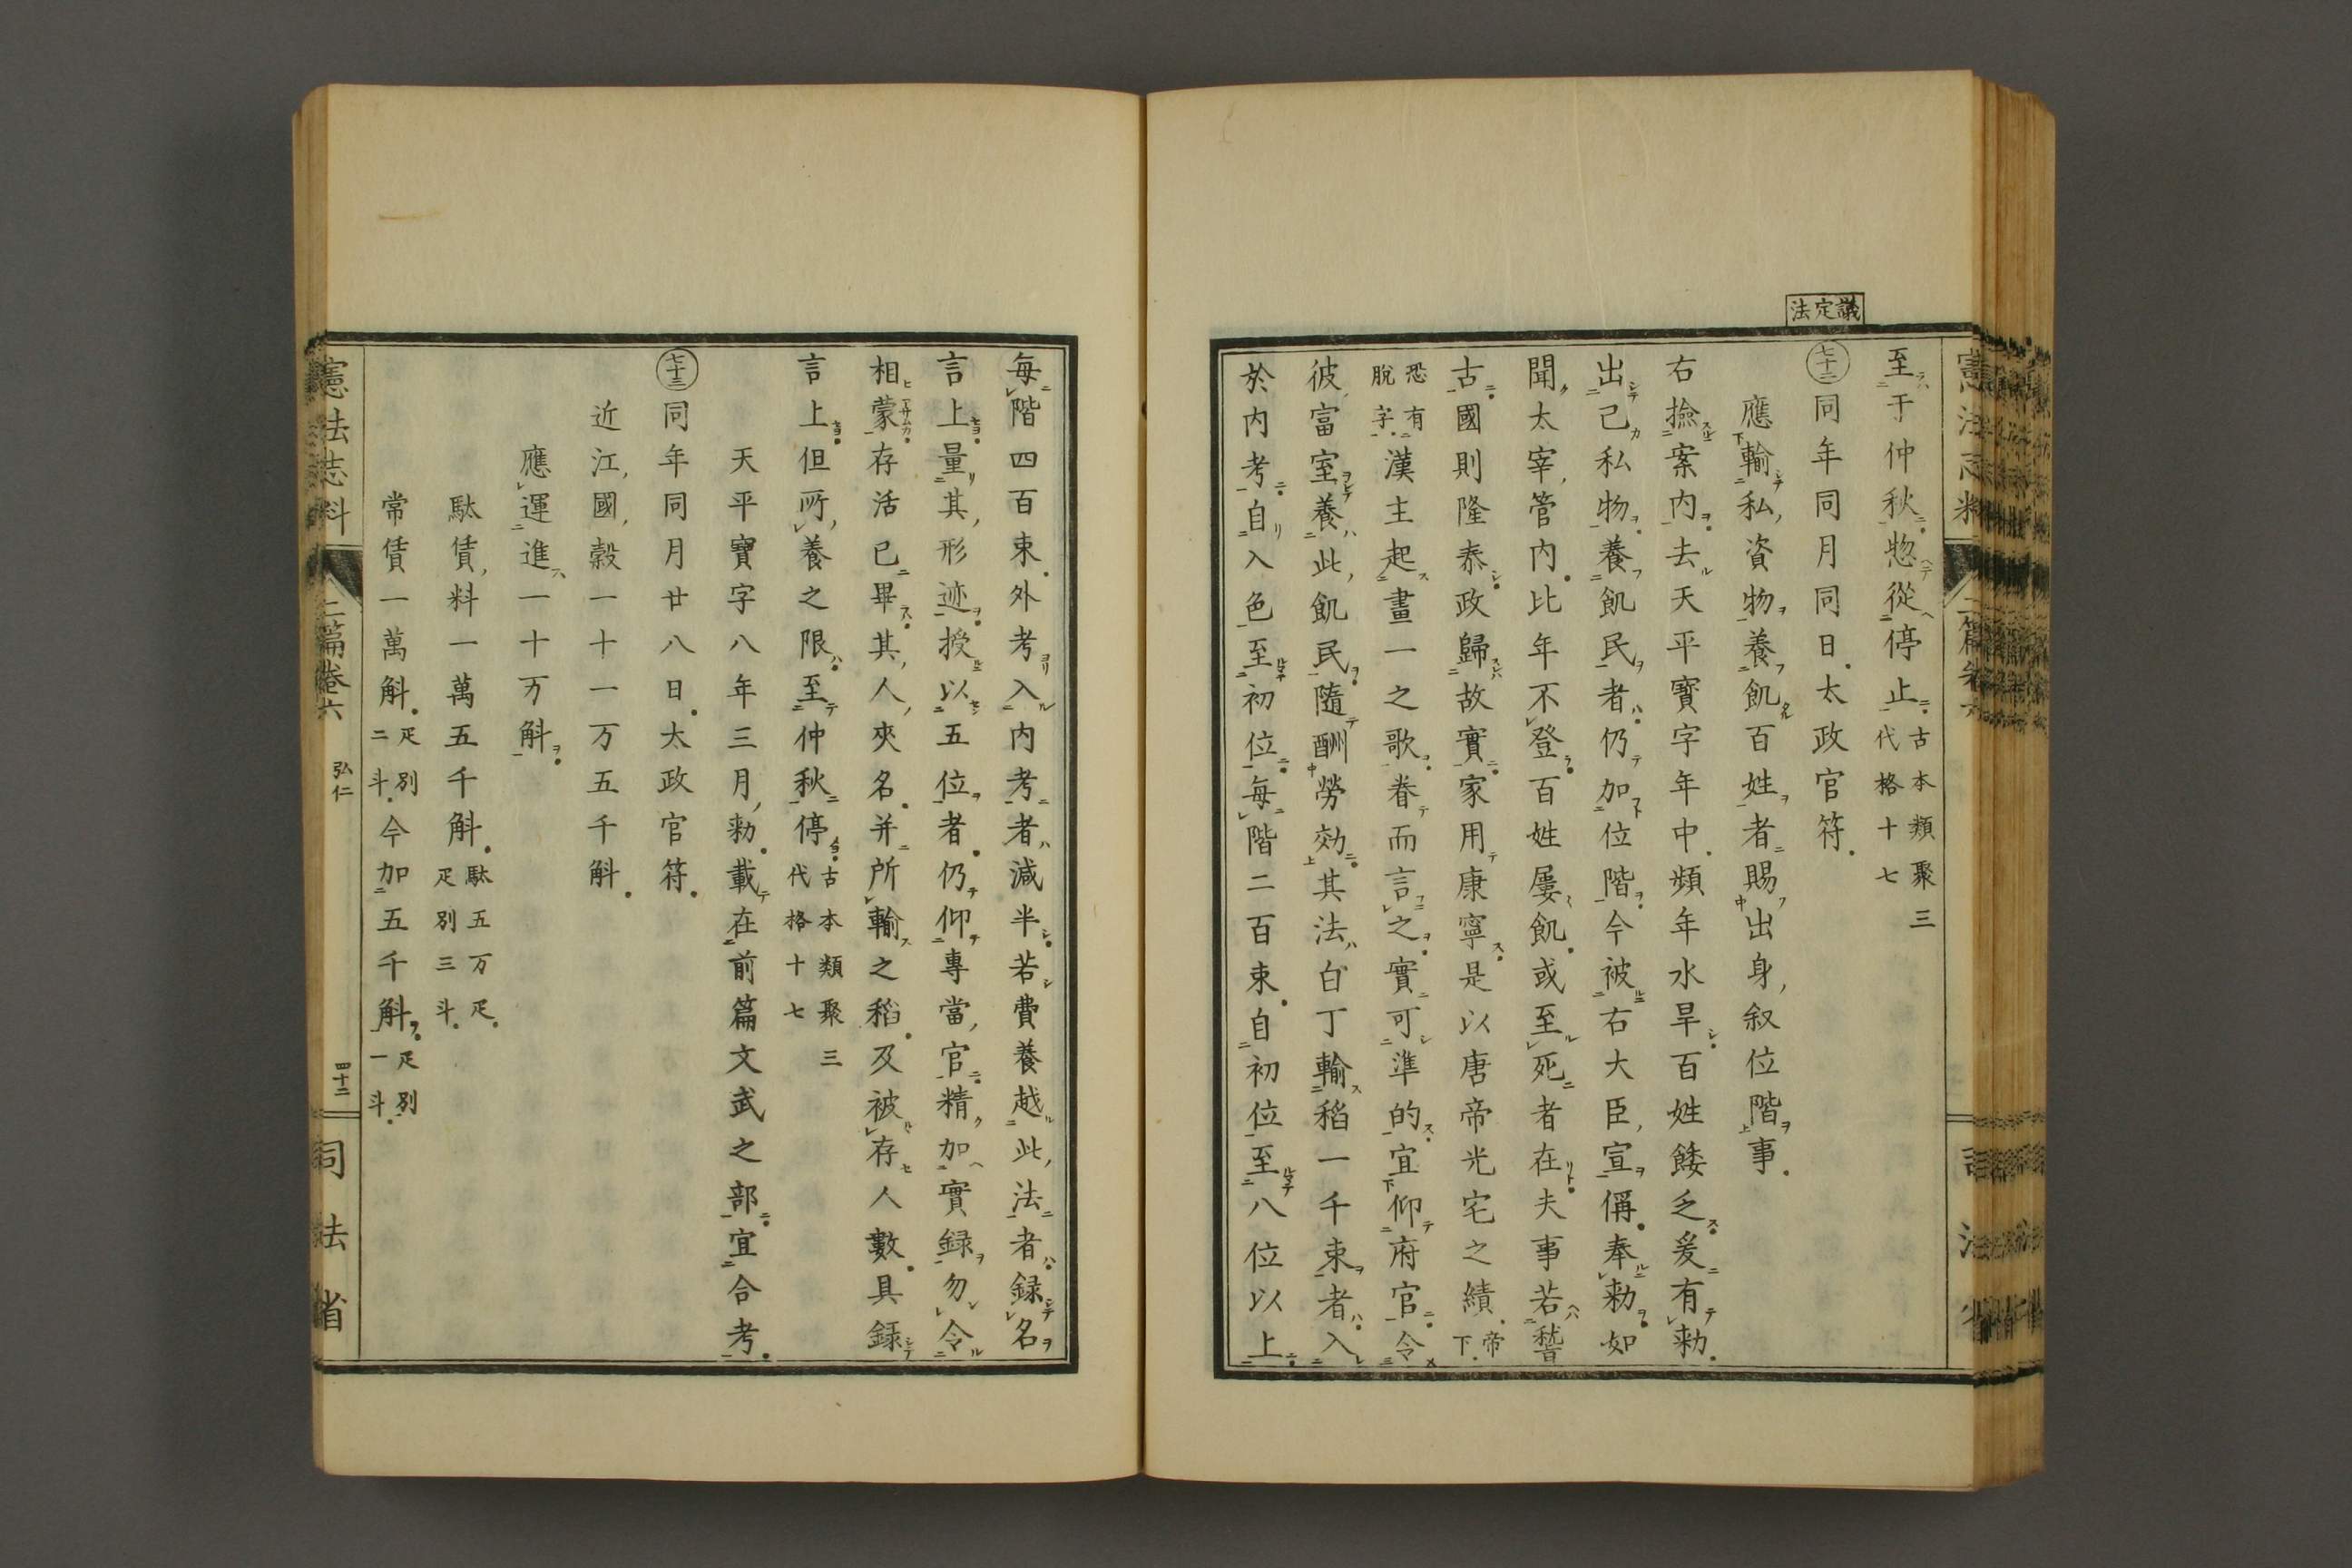 議定法
至于仲秋惣從停止古本類聚三代格十七
七十二同年同月同日太政官符
應輸私資物養飢百姓者賜出身叙位階事
右撿案內去天平寶字年中頻年水旱百姓餧乏爰有勅
出己私物養飢民者仍加位階今被右大臣宣偁奉勅如
聞太宰管內比年不登百姓屢飢或至死者在夫事若嵆
古國則隆泰政歸故實家用康寧是以唐帝光宅之績帝下
恐有脫字漢主起畫一之歌眷而言之實可準的宜仰府官令
彼富室養此飢民隨酬勞効其法白丁輸稻一千束者入
於內考自入色至初位每階二百束自初位至八位以上
憲法志料 二篇卷六
每階四百束外考入內考者減半若費養越此法者録名
言上量其形迹授以五位者仍仰專當官精加實録勿令
相蒙存活已畢其人夾名并所輸之稻及被存人數具録
言上但所養之限至仲秋停古本類聚三代格十七
天平寶字八年三月勅載在前篇文武之部宜合考
七十三同年同月廿八日太政官符
近江國穀一十一万五千斛
應運進一十万斛
駄賃料一萬五千斛駄五万疋疋別三斗
常賃一萬斛疋別二斗今加五千斛疋別一斗
憲法志料 二篇卷六 弘仁 四十二 司法省